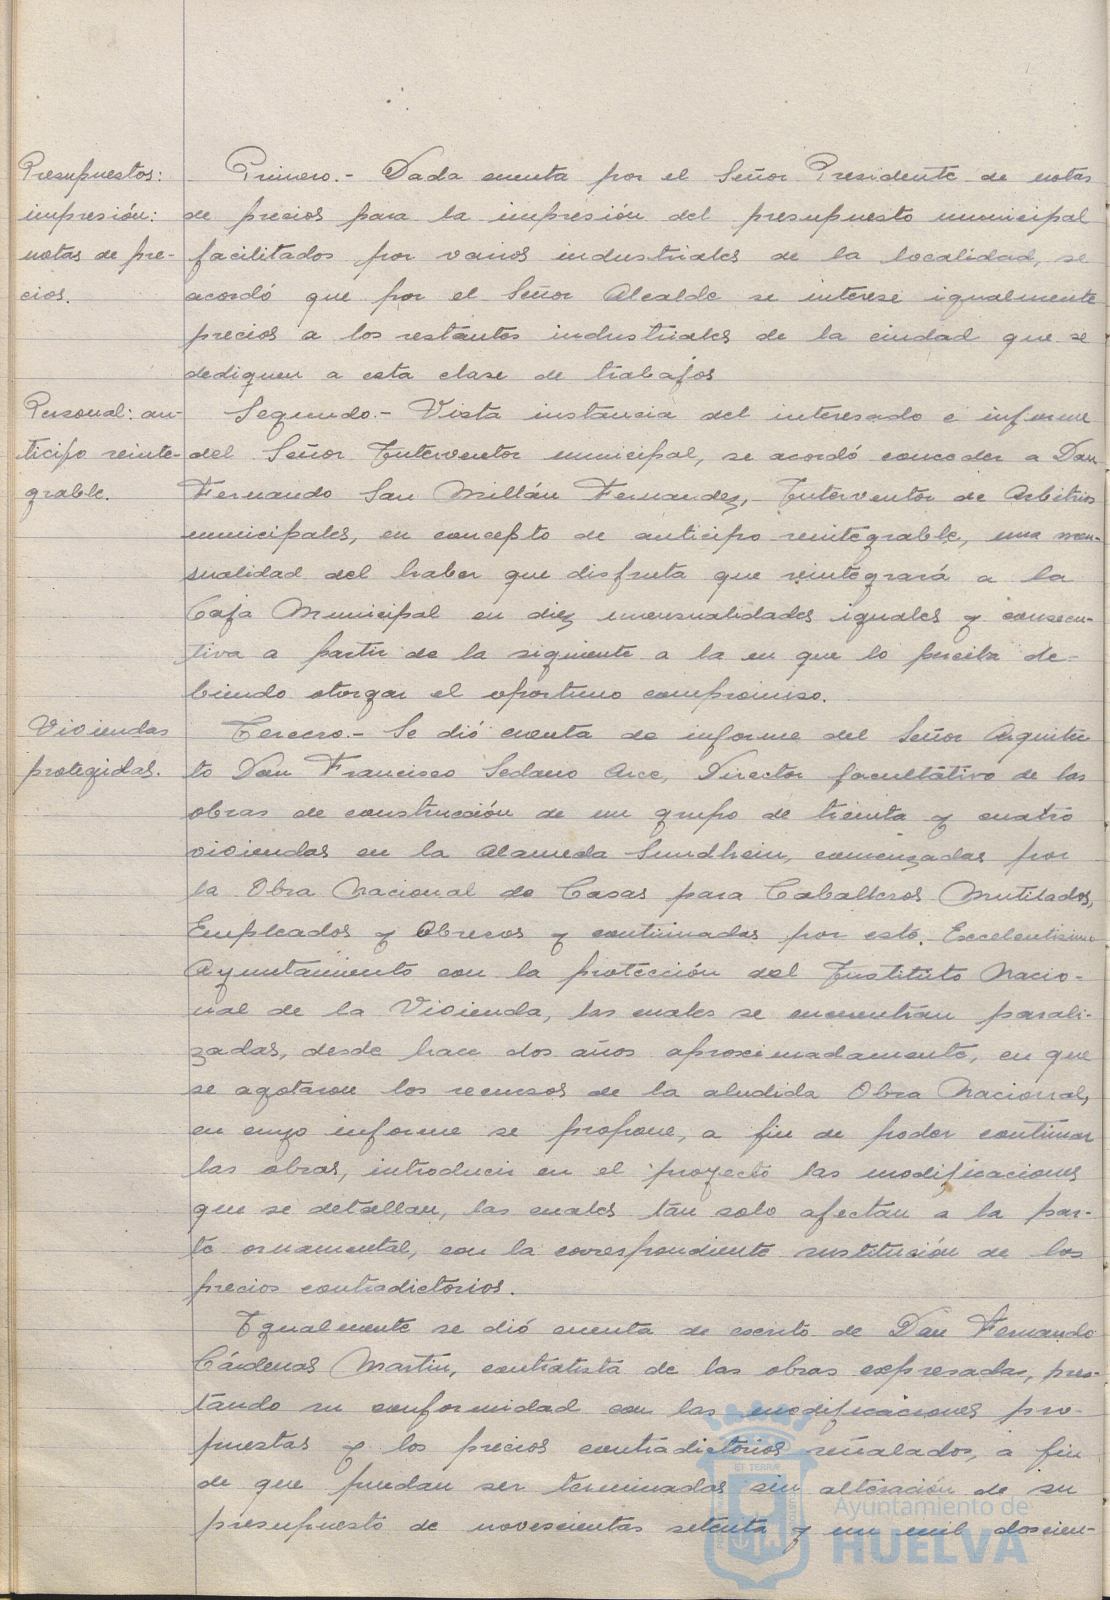 Presupuestos:
impresión:
notas de pre-
cios.
Primero.- Dada cuenta por el Señor Presidente de notas
de precios para la impresión del presupuesto municipal
facilitados por varios industriales de la localidad, se
acordó que por el Señor Alcalde se interese igualmente
precios a los restantes industriales de la ciudad que se
dediquen a esta clase de trabajos
Personal: an-
ticipo reinte-
grable.
Segundo.- Vista instancia del interesado e informe
del Señor Interventor municipal, se acordó conceder a Don
Fernando San Millán Fernandez, Interventor de Arbitrios
municipales, en concepto de anticipo reintegrable, una men-
sualidad del haber que disfruta que reintegrará a la
Caja Municipal en diez mensualidades iguales y consecu-
tiva a partir de la siguiente a la en que lo perciba de-
biendo otorgar el oportuno compromiso.
Viviendas
protegidas.
Tercero.- Se dió cuenta de informe del Señor Arquitec
to Don Francisco Sedano Arce, Director facultativo de las
obras de construcción de un grupo de treinta y cuatro
viviendas en la Alameda Sundhein, comenzadas por
la Obra Nacional de Casas para Caballeros Mutilados,
Empleados y Obreros y continuadas por este Excelentísimo
Ayuntamiento con la protección del Instituto Nacio-
nal de la Vivienda, las cuales se encuentran parali-
zadas, desde hace dos años aproximadamente, en que
se agotaron los recursos de la aludida Obra Nacional,
en cuyo informe se propone, a fin de poder continuar
las obras, introducir en el proyecto las modificaciones
que se detallan, las cuales tan solo afectan a la par-
te ornamental, con la correspondiente sustitución de los
precios contradictorios.
Igualmente se dió cuenta de escrito de Don Fernando
Cárdenas Martín, contratista de las obras expresadas, pres-
tando su conformidad con las modificaciones pro-
puestas y los precios contradictorios señalados, a fin
de que puedan ser terminadas sin alteración de su
presupuesto de novescientas setenta y un mil doscien-
ET TERRÆ
Ayuntamiento de
HUELVA